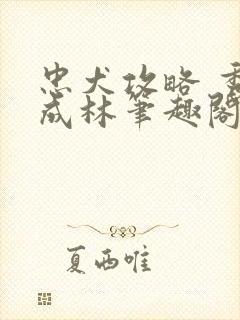 忠犬攻略
成林笔趣阁
夏西唯